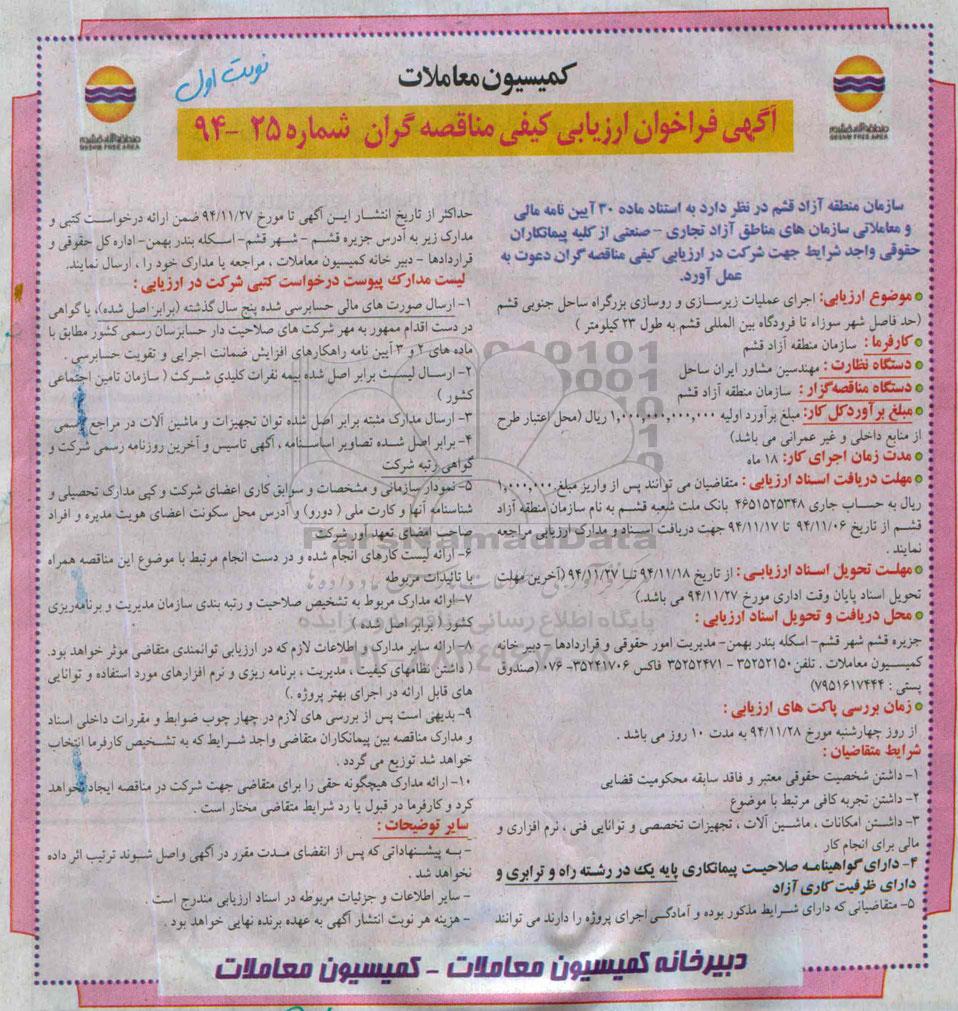 کمیسیون معاملات
نوبت اول
آگهی فراخوان ارزیابی کیفی مناقصه گران شماره ۲۵ -۹۴
منطقه آزاد قشم
QESHM FREE AREA
منطقه آزاد قشم
QESHM FREE AREA
سازمان منطقه آزاد قشم در نظر دارد به استناد ماده ۳۰ آیین نامه مالی
و معاملاتی سازمان های مناطق آزاد تجاری - صنعتی از کلیه پیمانکاران
حقوقی واجد شرایط جهت شرکت در ارزیابی کیفی مناقصه گران دعوت به
عمل آورد.
موضوع ارزیابی: اجرای عملیات زیرسازی و روسازی بزرگراه ساحل جنوبی قشم
(حد فاصل شهر سوزاء تا فرودگاه بین المللی قشم به طول ۲۳ کیلومتر )
کارفرما : سازمان منطقه آزاد قشم
دستگاه نظارت : مهندسین مشاور ایران ساحل
دستگاه مناقصه گزار : سازمان منطقه آزاد قشم
مبلغ برآورد کل کار: مبلغ برآورد اولیه ۱,۰۰۰,۰۰۰,۰۰۰,۰۰۰ ریال (محل اعتبار طرح
از منابع داخلی و غیر عمرانی می باشد)
مدت زمان اجرای کار: ۱۸ ماه
مهلت دریافت اسناد ارزیابی : متقاضیان می توانند پس از واریز مبلغ ۱,۰۰۰,۰۰۰
ریال به حساب جاری ۴۶۵۱۵۲۵۳۴۸ بانک ملت شعبه قشم به نام سازمان منطقه آزاد
قشم از تاریخ ۹۴/۱۱/۰۶ تا ۹۴/۱۱/۱۷ جهت دریافت اسناد و مدارک ارزیابی مراجعه
نمایند .
مهلت تحویل اسناد ارزیابی : از تاریخ ۹۴/۱۱/۱۸ تا ۹۴/۱۱/۲۷ (آخرین مهلت
تحویل اسناد پایان وقت اداری مورخ ۹۴/۱۱/۲۷ می باشد.)
محل دریافت و تحویل اسناد ارزیابی :
جزیره قشم شهر قشم- اسکله بندر بهمن- مدیریت امور حقوقی و قراردادها - دبیر خانه
کمیسیون معاملات . تلفن ۳۵۲۵۲۱۵۰ - ۳۵۲۵۲۴۷۱ فاکس ۳۵۲۴۱۷۰۶- ۰۷۶ (صندوق
پستی : ۷۹۵۱۶۱۷۴۴۴)
زمان بررسی پاکت های ارزیابی :
از روز چهارشنبه مورخ ۹۴/۱۱/۲۸ به مدت ۱۰ روز می باشد .
شرایط متقاضیان :
۱- داشتن شخصیت حقوقی معتبر و فاقد سابقه محکومیت قضایی
۲- داشتن تجربه کافی مرتبط با موضوع
۳- داشتن امکانات ، ماشین آلات ، تجهیزات تخصصی و توانایی فنی ، نرم افزاری و
مالی برای انجام کار
۴- دارای گواهینامه صلاحیت پیمانکاری پایه یک در رشته راه و ترابری و
دارای ظرفیت کاری آزاد
۵- متقاضیانی که دارای شرایط مذکور بوده و آمادگی اجرای پروژه را دارند می توانند
حداکثر از تاریخ انتشار این آگهی تا مورخ ۹۴/۱۱/۲۷ ضمن ارائه درخواست کتبی و
مدارک زیر به آدرس جزیره قشم - شهر قشم- اسکله بندر بهمن- اداره کل حقوقی و
قراردادها - دبیر خانه کمیسیون معاملات ، مراجعه یا مدارک خود را ، ارسال نمایند.
لیست مدارک پیوست درخواست کتبی شرکت در ارزیابی :
۱- ارسال صورت های مالی حسابرسی شده پنج سال گذشته (برابر اصل شده)، یا گواهی
در دست اقدام ممهور به مهر شرکت های صلاحیت دار حسابرسان رسمی کشور مطابق با
ماده های ۲ و ۳ آیین نامه راهکارهای افزایش ضمانت اجرایی و تقویت حسابرسی .
۲- ارسال لیست برابر اصل شده بیمه نفرات کلیدی شرکت ( سازمان تامین اجتماعی
کشور )
۳- ارسال مدارک مثبته برابر اصل شده توان تجهیزات و ماشین آلات در مراجع رسمی
۴- برابر اصل شده تصاویر اساسنامه ، آگهی تاسیس و آخرین روزنامه رسمی شرکت و
گواهی رتبه شرکت
۵- نمودار سازمانی و مشخصات و سوابق کاری اعضای شرکت و کپی مدارک تحصیلی و
شناسنامه آنها و کارت ملی ( دورو) و آدرس محل سکونت اعضای هویت مدیره و افراد
صاحب امضای تعهد آور شرکت
۶- ارائه لیست کارهای انجام شده و در دست انجام مرتبط با موضوع این مناقصه همراه
با تائیدات مربوطه
۷- ارائه مدارک مربوط به تشخیص صلاحیت و رتبه بندی سازمان مدیریت و برنامه ریزی
کشور ( برابر اصل شده )
۸- ارائه سایر مدارک و اطلاعات لازم که در ارزیابی توانمندی متقاضی موثر خواهد بود.
( داشتن نظامهای کیفیت ، مدیریت ، برنامه ریزی و نرم افزارهای مورد استفاده و توانایی
های قابل ارائه در اجرای بهتر پروژه .)
۹- بدیهی است پس از بررسی های لازم در چهار چوب ضوابط و مقررات داخلی اسناد
و مدارک مناقصه بین پیمانکاران متقاضی واجد شرایط که به تشخیص کارفرما انتخاب
خواهد شد توزیع می گردد .
۱۰- ارائه مدارک هیچگونه حقی را برای متقاضی جهت شرکت در مناقصه ایجاد نخواهد
کرد و کارفرما در قبول یا رد شرایط متقاضی مختار است .
سایر توضیحات :
- به پیشنهاداتی که پس از انقضای مدت مقرر در آگهی واصل شوند ترتیب اثر داده
نخواهد شد .
- سایر اطلاعات و جزئیات مربوطه در اسناد ارزیابی مندرج است .
- هزینه هر نوبت انتشار آگهی به عهده برنده نهایی خواهد بود .
دبیرخانه کمیسیون معاملات - کمیسیون معاملات
ParsNamadData
پایگاه اطلاع رسانی مناقصه و مزایده